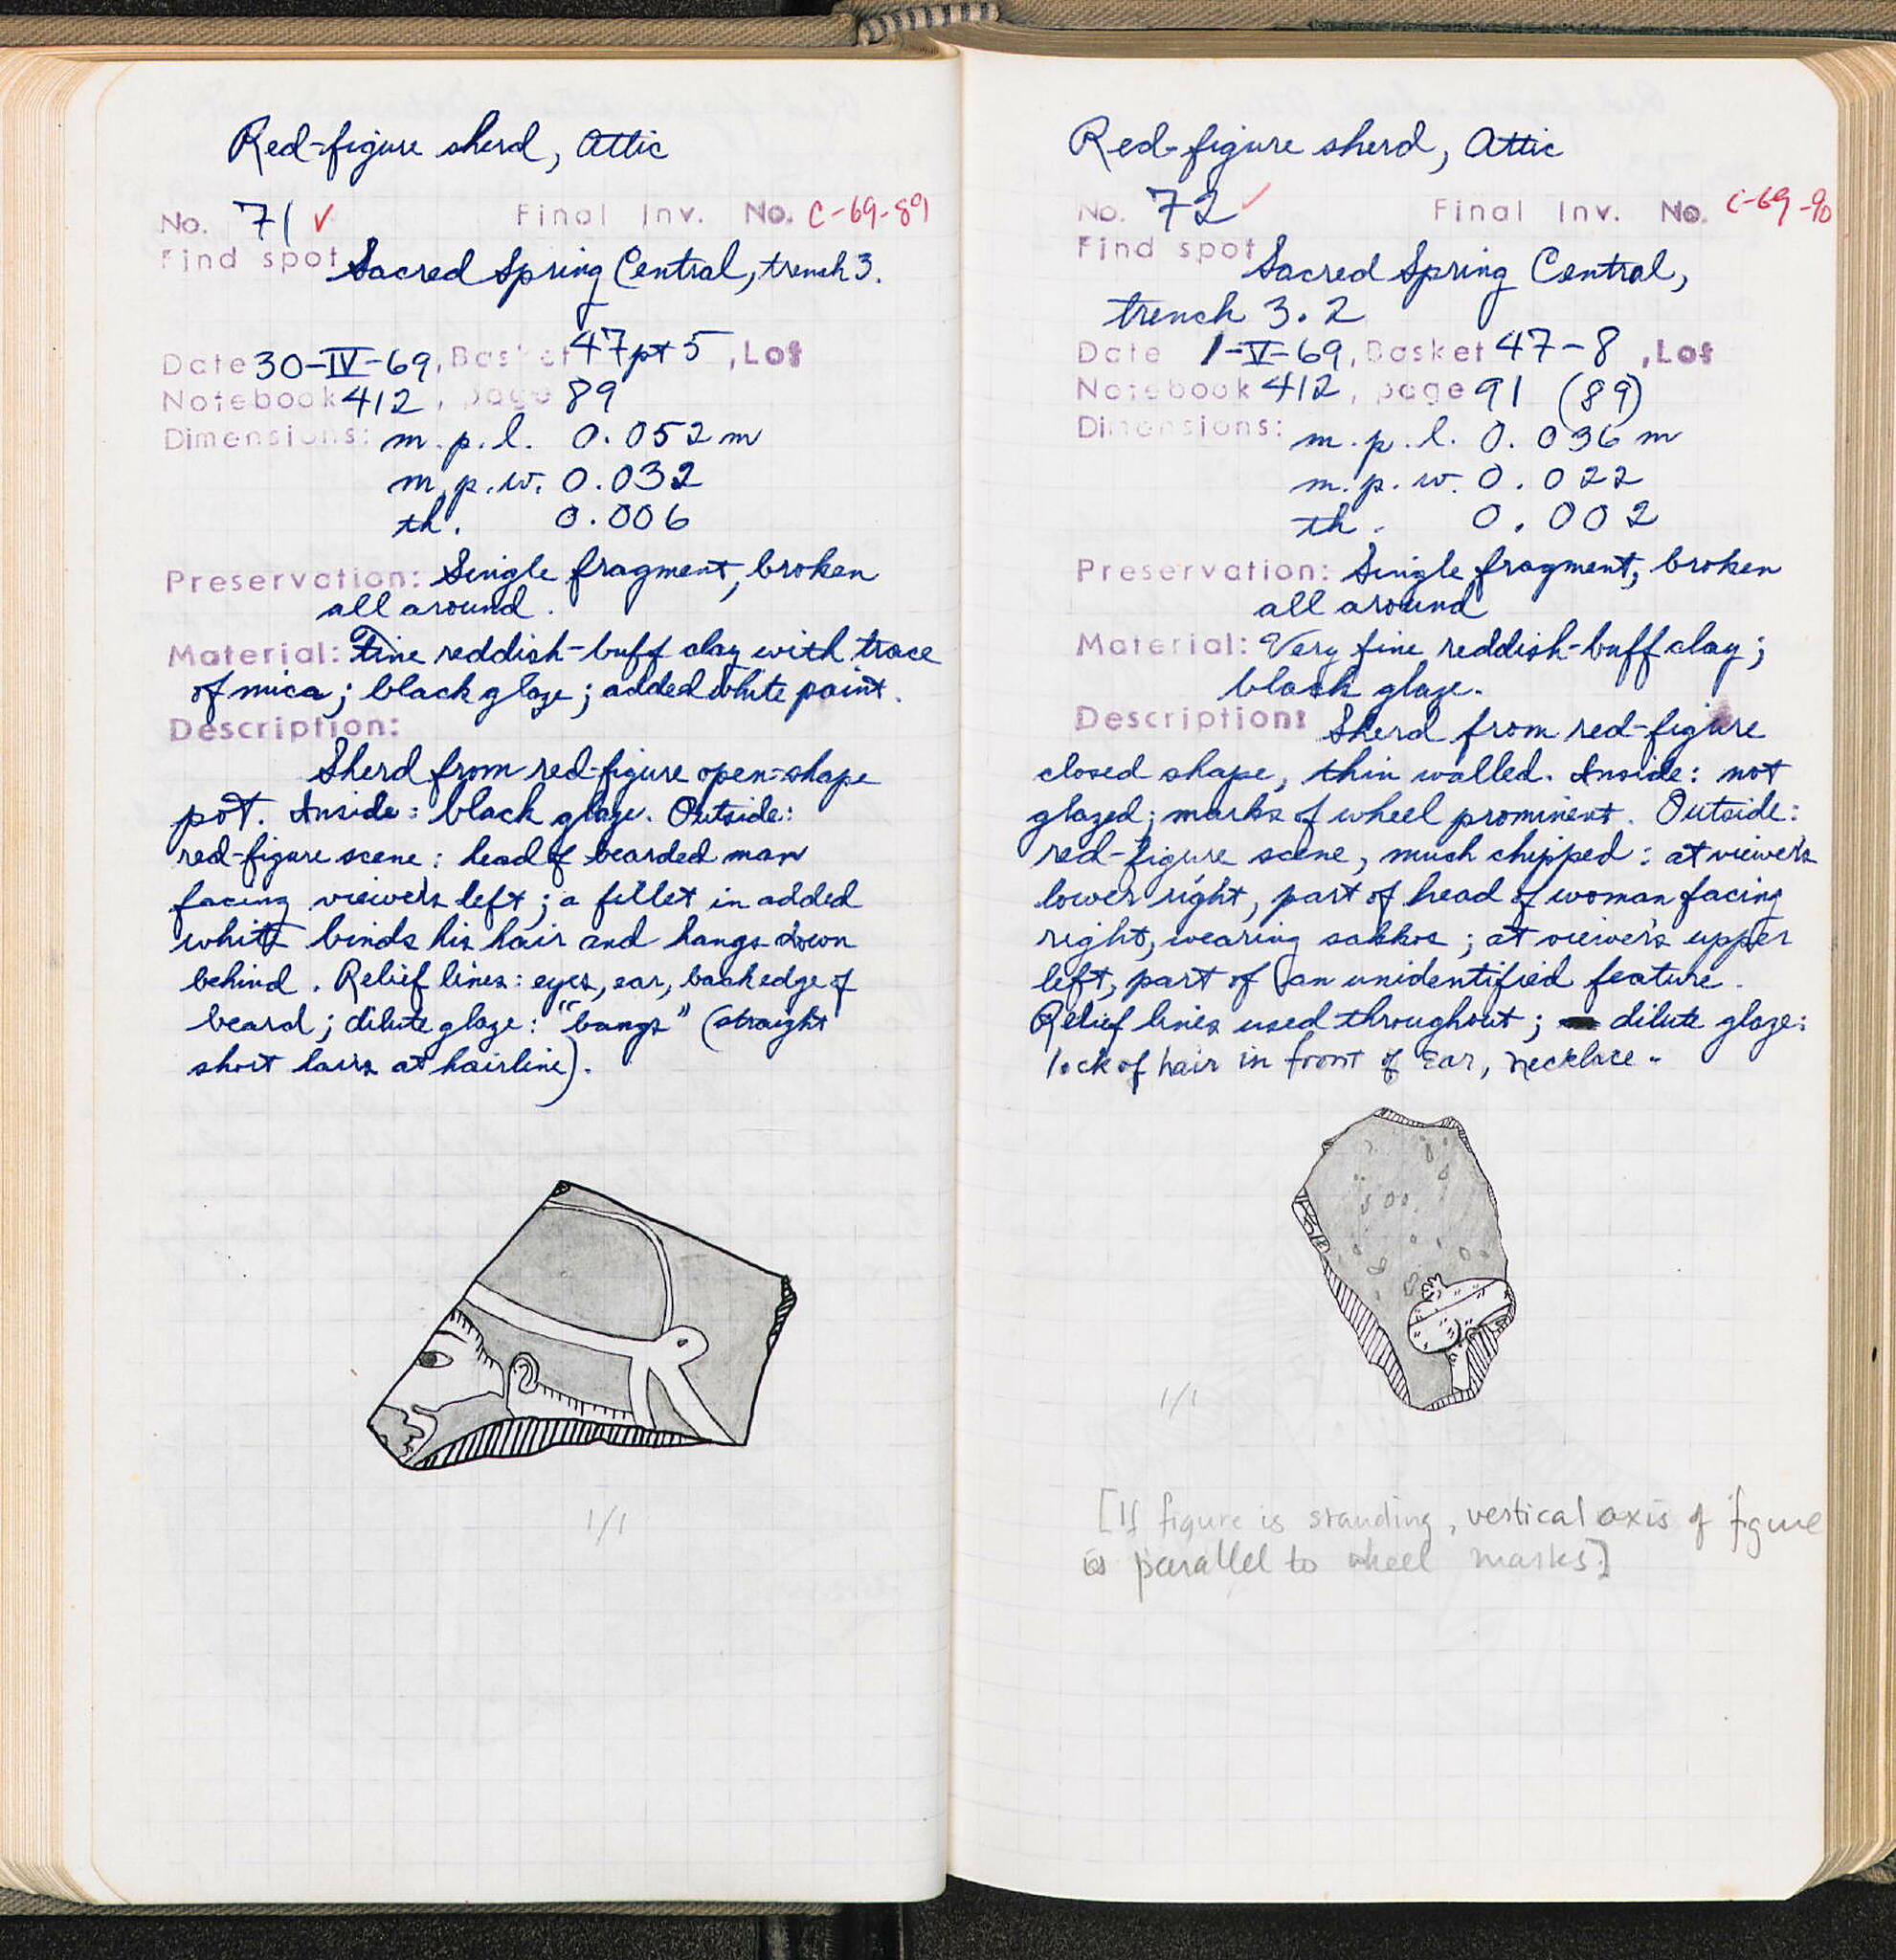 Red-figure sherd, Attic
No. 71 ✓ Final Inv. No. C-69-89
Find spot Sacred Spring Central, trench 3.
Date 30-IV-69, Basket 47 pt 5, Lot
Notebook 412, page 89
Dimensions: m.p.l. 0.052 m
m.p.w. 0.032
th. 0.006
Preservation: Single fragment, broken
all around.
Material: Fine reddish-buff clay with trace
of mica; black glaze; added white paint.
Description:
Sherd from red-figure open-shape
pot. Inside: black glaze. Outside:
red-figure scene: head of bearded man
facing viewer's left; a fillet in added
white binds his hair and hangs down
behind. Relief lines: eyes, ear, back edge of
beard; dilute glaze: "bangs" (straight
short hairs at hairline).
1/1
Red-figure sherd, Attic
No. 72 ✓ Final Inv. No. C-69-90
Find spot Sacred Spring Central,
trench 3.2
Date 1-V-69, Basket 47-8, Lot
Notebook 412, page 91 (89)
Dimensions: m.p.l. 0.036 m
m.p.w. 0.022
th. 0.002
Preservation: Single fragment, broken
all around
Material: Very fine reddish-buff clay;
black glaze.
Description: Sherd from red-figure
closed shape, thin walled. Inside: not
glazed; marks of wheel prominent. Outside:
red-figure scene, much chipped: at viewer's
lower right, part of head of woman facing
right, wearing sakkos; at viewer's upper
left, part of an unidentified feature.
Relief lines used throughout; dilute glaze:
lock of hair in front of ear, necklace.
1/1
[If figure is standing, vertical axis of figure
is parallel to wheel marks]